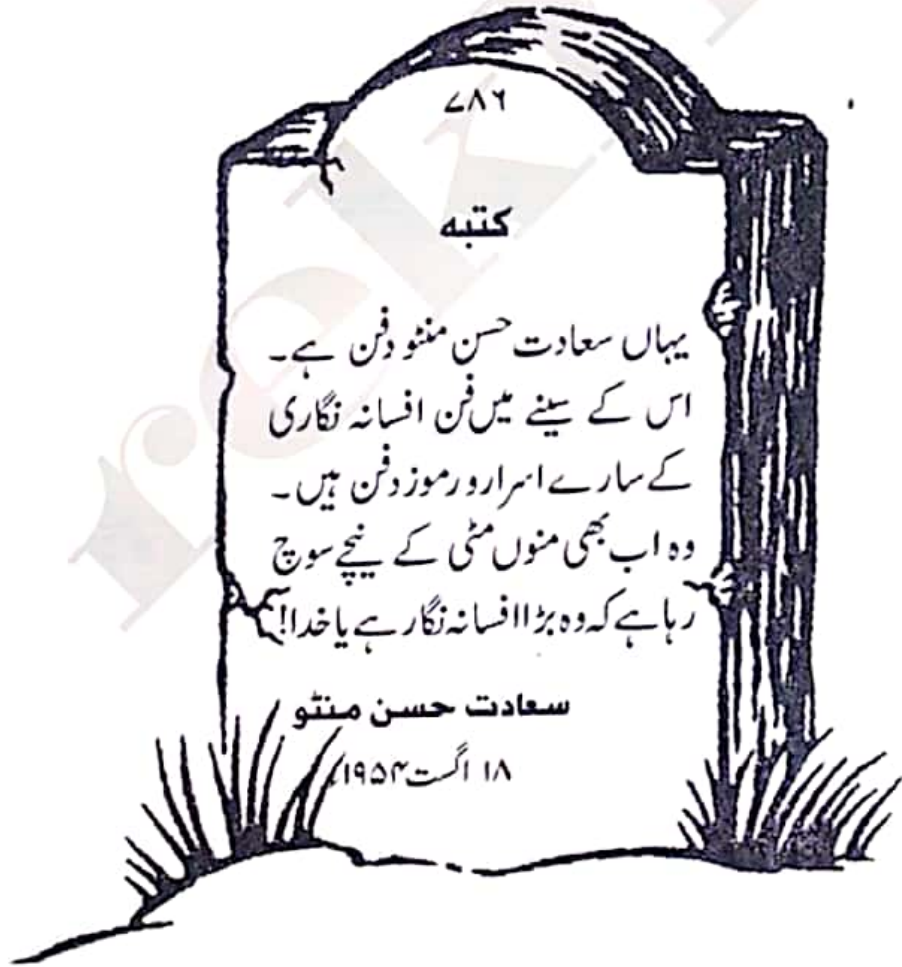 ۷۸۶
کتبہ
یہاں سعادت حسن منٹو دفن ہے۔
اس کے سینے میں فن افسانہ نگاری
کے سارے اسرار و رموز دفن ہیں۔
وہ اب بھی منوں مٹی کے نیچے سوچ
رہا ہے کہ وہ بڑا افسانہ نگار ہے یا خدا!
سعادت حسن منٹو
۱۸ اگست ۱۹۵۴ء